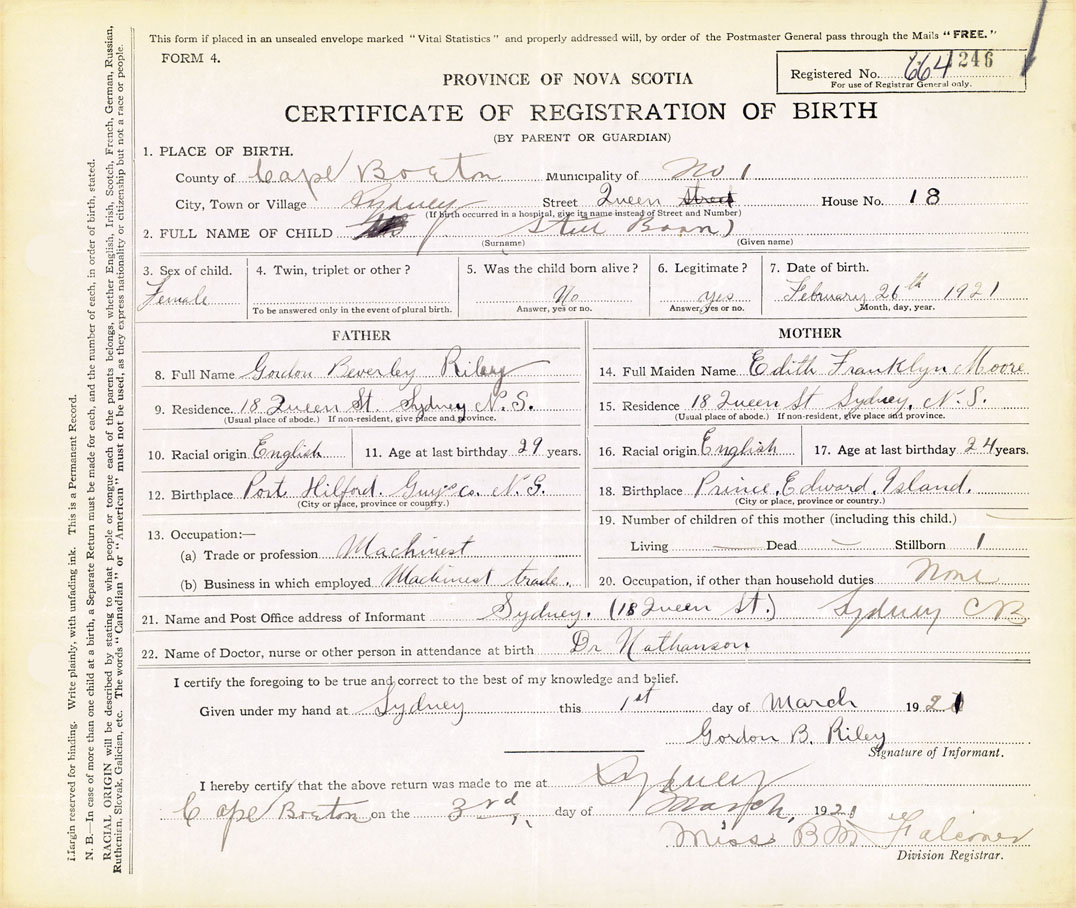 This form if placed in an unsealed envelope marked "Vital Statistics" and properly addressed will, by order of the Postmaster General pass through the Mails "FREE."
FORM 4.
Registered No. 664 246
For use of Registrar General only.
PROVINCE OF NOVA SCOTIA
CERTIFICATE OF REGISTRATION OF BIRTH
(BY PARENT OR GUARDIAN)
1. PLACE OF BIRTH.
County of Cape Breton Municipality of No 1
City, Town or Village Sydney Street Queen Street House No. 18
(If birth occurred in a hospital, give its name instead of Street and Number)
2. FULL NAME OF CHILD Still Born)
(Surname) (Given name)
3. Sex of child. 4. Twin, triplet or other? 5. Was the child born alive? 6. Legitimate? 7. Date of birth.
Female No yes February 26th 1921
To be answered only in the event of plural birth. Answer, yes or no. Answer, yes or no. Month, day, year.
FATHER MOTHER
8. Full Name Gordon Beverley Riley
9. Residence. 18 Queen St. Sydney N.S.
(Usual place of abode.) If non-resident, give place and province.
10. Racial origin English 11. Age at last birthday 29 years.
12. Birthplace Port Hilford. Guys co. N.S.
(City or place, province or country.)
13. Occupation:—
(a) Trade or profession Machinest
(b) Business in which employed Machinest trade.
14. Full Maiden Name Edith Franklyn Moore
15. Residence 18 Queen St Sydney, N.S.
(Usual place of abode.) If non-resident, give place and province.
16. Racial origin English 17. Age at last birthday 24 years.
18. Birthplace Prince, Edward, Island.
(City or place, province or country.)
19. Number of children of this mother (including this child.)
Living — Dead — Stillborn 1
20. Occupation, if other than household duties None
21. Name and Post Office address of Informant Sydney. (18 Queen St.) Sydney CB
22. Name of Doctor, nurse or other person in attendance at birth Dr Nathanson
I certify the foregoing to be true and correct to the best of my knowledge and belief.
Given under my hand at Sydney this 1st day of March 1921
Gordon B. Riley
Signature of Informant.
I hereby certify that the above return was made to me at Sydney
Cape Breton on the 3rd day of March, 1921
Miss BM Falconer
Division Registrar.
Margin reserved for binding. Write plainly, with unfading ink. This is a Permanent Record.
N. B.—In case of more than one child at a birth, a Separate Return must be made for each, and the number of each, in order of birth, stated.
RACIAL ORIGIN will be described by stating to what people or tongue each of the parents belongs, whether English, Irish, Scotch, French, German, Russian,
Ruthenian, Slovak, Galician, etc. The words "Canadian" or "American" must not be used, as they express nationality or citizenship but not a race or people.